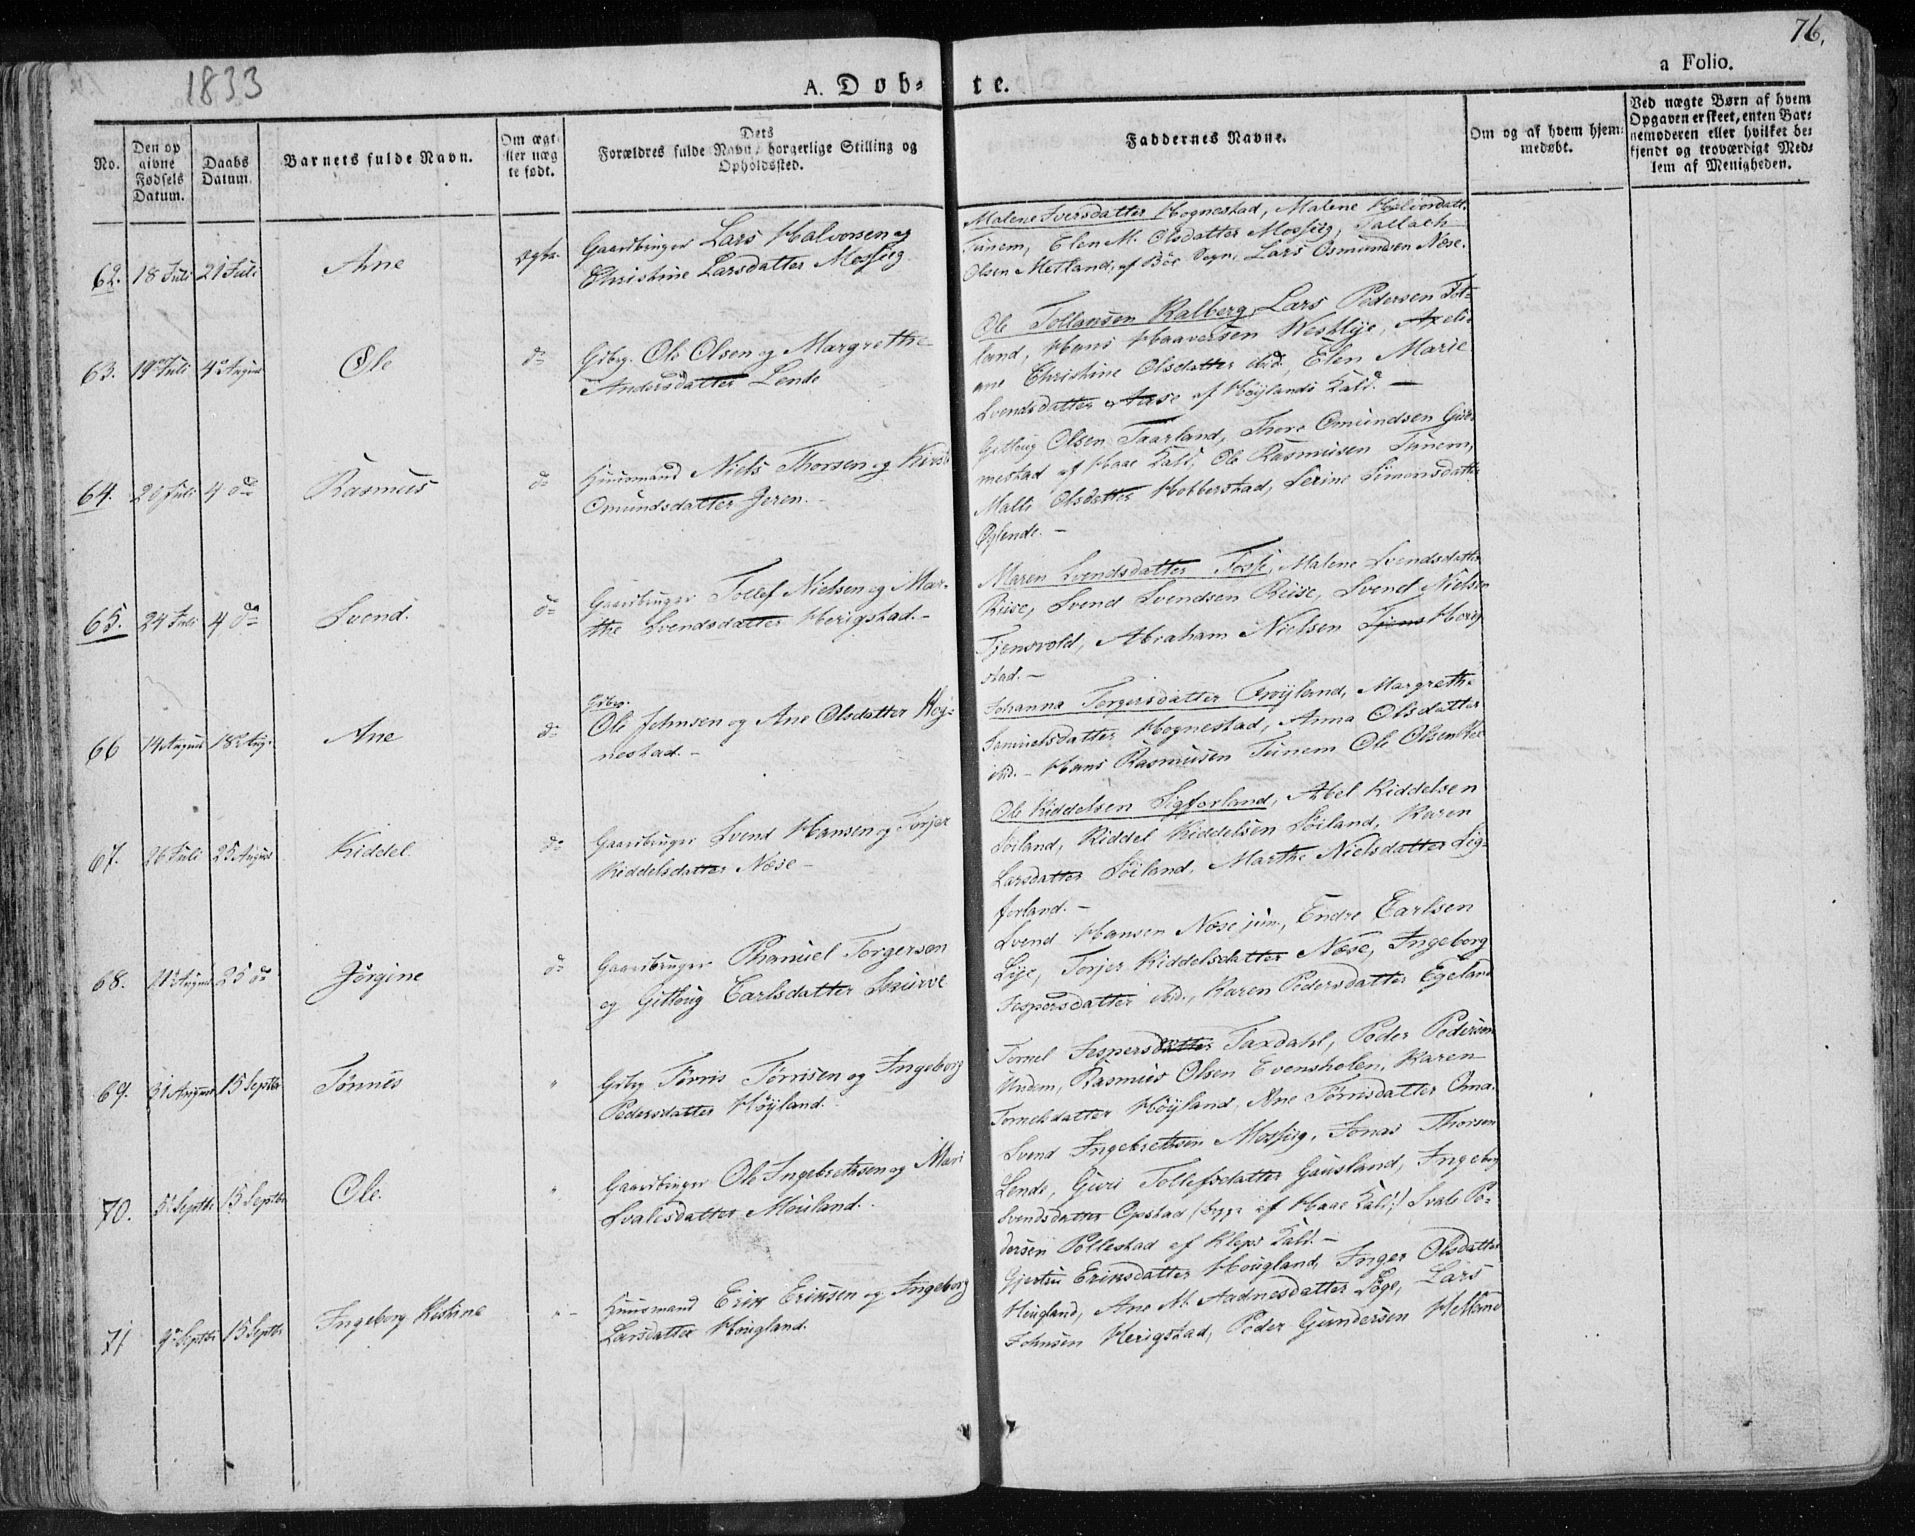 76.
1833
A. Døb-te.
a Folio.
No.
Den op
givne
Fødsels
Datum.
Daabs
Datum.
Barnets fulde Navn.
Om ægt-
eller uæg
te født.
Dets
Forældres fulde Navn, borgerlige Stilling og
Opholdssted.
Faddernes Navne.
Om og af hvem hjem-
medøbt.
Ved uægte Børn af hvem
Opgaven er skeet, enten Bar-
nemoderen eller hvilket be-
kjendt og troværdigt Med-
lem af Menigheden.
62. 18 Juli 21 Juli Ane ægte
Gaardbruger Lars Halvorsen og
Christine Larsdatter Mossig
Malene Iversdatter Hognestad, Malene Halvorsdatt.
Tunem, Elen M. Olsdatter Mossig, Tallach
Olsen Metland, af Böe Sogn, Lars Osmundsen Næse.
63. 19 Juli 4 August Ole do
Gibrg. Ole Olsen og Margrethe
Andersdatter Lende
Ole Tollansen Kalberg, Lars Pedersen Tot-
land, Hans Haaversen Westlye, Axeli-
ane Christine Olsdatter ibid., Elen Marie
Svendsdatter Aase af Höylands Kald. –
64. 20 Juli 4 do Rasmus do
Huusmand Niels Thorsen og Kirsti
Omundsdatter Jeren. –
Gitlaug Olsen Taarland, Thore Omundsen Gud-
mestad af Haae Kald, Ole Rasmusen Tunem,
Malli Olsdatter Hobberstad, Serine Simonsdatter
Öglende. –
65. 24 Juli 4 do Svend. do
Gaardbruger Tollef Nielsen og Mar-
the Svendsdatter Herigstad. –
Maren Svendsdatter Fosse, Malene Svendsdatter
Riise, Svend Svendsen Riise, Svend Nielsen
Tjensvold, Abraham Nielsen Tjens Herig-
stad. –
66 14 August 18 Aug. Ane do
Gibrg.
Ole Johnsen og Ane Olsdatter Hog-
nestad. –
Johanna Torgersdatter Fröyland, Margrethe
Samuelsdatter Hognestad, Anna Olsdatter
ibd. – Hans Rasmusen Tunem Ole Olsen
67. 26 Juli 25 August Kiddel. do
Gaardbruger Svend Hansen og Torjer
Kiddelsdatter Næse –
Ole Kiddelsen Sigforland, Abel Kiddelsen
Söiland, Kiddel Kiddelsen Söiland, Karen
Larsdatter Söiland, Marthe Nielsdatter Sig-
forland. –
68. August 25 do Jörgine do
Gaardbruger Phanuel Torgersen
og Gitlaug Carlsdatter Skurve
Svend Hansen Næse jun., Endre Carlsen
Lye, Torjer Kiddelsdatter Næse, Ingeborg
Jespersdatter ibd., Karen Pedersdatter Egeland
69. 31 August 15 Septbr Tönnes "
Gibrg Torris Torrisen og Ingeborg
Pedersdatter Höyland.
Tornel Jespersdatter Taxdahl, Peder Pedersen
Undem, Rasmus Olsen Evensholen, Karen
Tornelsdatter Höyland, Ane Torrisdatter Oma.
70. 5 Septbr 15 Septbr Ole. "
Gaardbruger Ole Ingebrethsen og Mari
Svalesdatter Mouland.
Svend Ingebrethsen Mossig, Jonas Thorsen
Lende, Guri Tollefsdatter Gausland, Ingeborg
Svendsdatter Opstad (begge af Haae Kald) Svale Pe-
dersen Pollestad af Kleps Kald. –
71 9 Septbr 15 Septbr Ingeborg Kistine "
Huusmand Erik Eriksen og Ingeborg
Larsdatter Hougland.
Gjertru Eriksdatter Hougland, Inger Olsdatter
Hougland, Ane M. Aadnesdatter Loge, Lars
Johnsen Herigstad, Peder Gundersen Helland